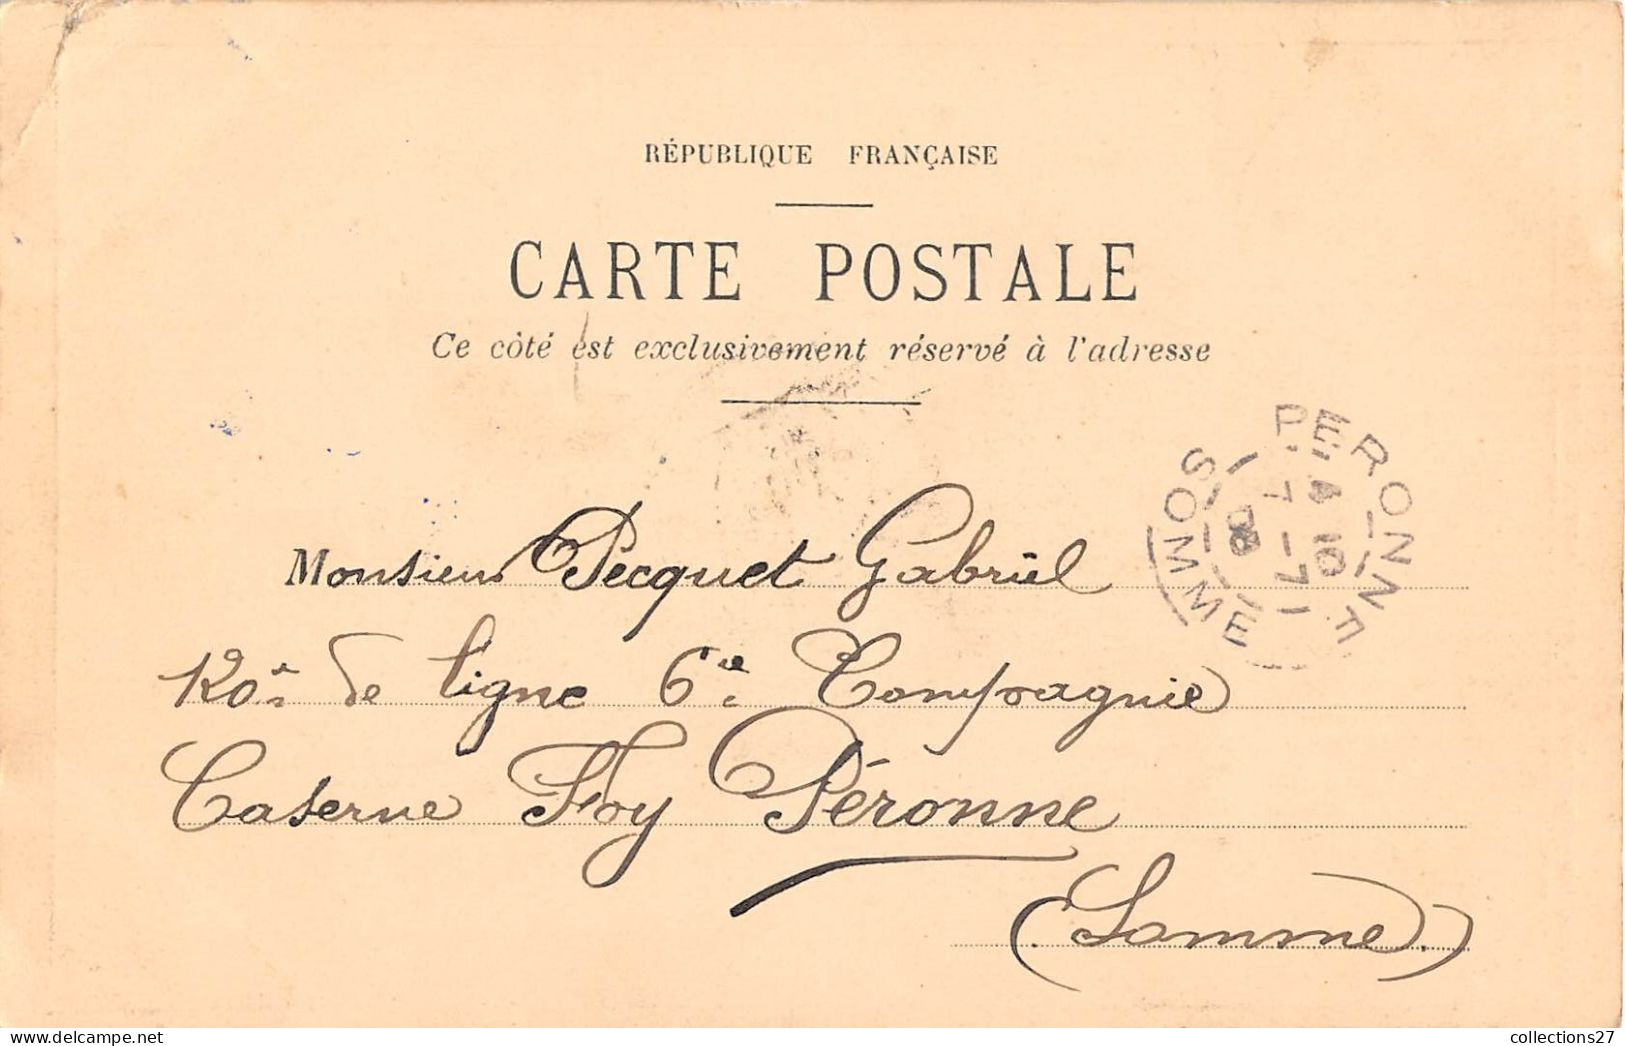 RÉPUBLIQUE FRANÇAISE
CARTE POSTALE
Ce côté est exclusivement réservé à l'adresse
PERONNE
SOMME
Monsieur Pecquet Gabriel
120e de ligne 6e Compagnie
Caserne Foy Péronne
(Somme)
collections27